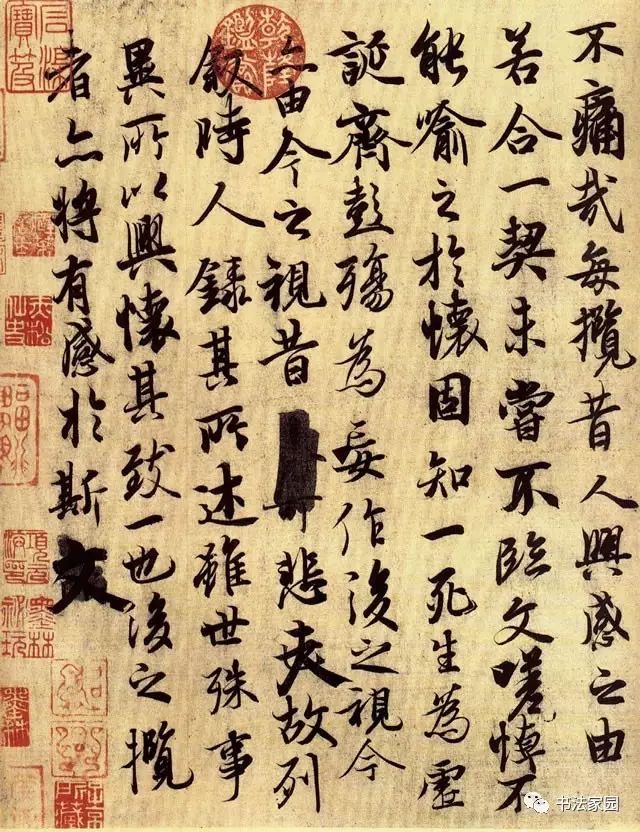 不痛哉每攬昔人興感之由
若合一契未嘗不臨文嗟悼不
能喻之於懷固知一死生為虛
誕齊彭殤為妄作後之視今
亦由今之視昔悲夫故列
敘時人錄其所述雖世殊事
異所以興懷其致一也後之攬
者亦將有感於斯文
书法家园